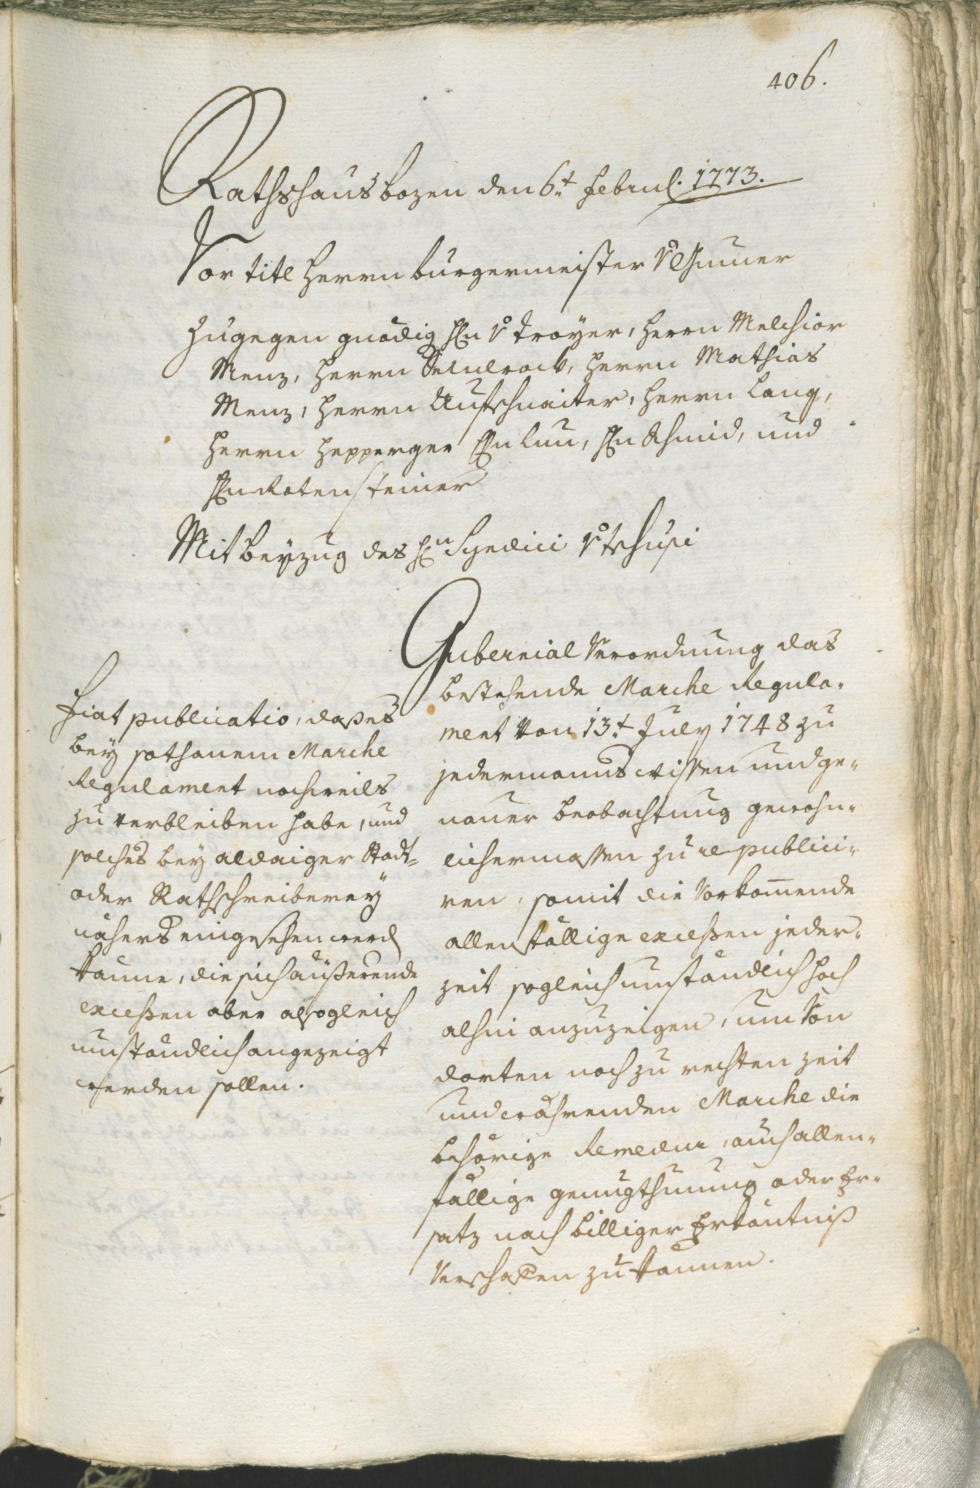 406.
Rathshaus bozen den 6.t Februl. 1773.
Vor titl Herrn burgermeister v Gumer
Zugegen gnädig Hn v Troyer, Herrn Melchior
Menz, Herrn Herrn Mathias
Menz, Herrn Aufschnaiter, Herrn Lang,
Herrn Hepperger Hn Lun, Hn Schmid, und
Hn Rotensteiner
Mit beyzug des Hn Syndici v Tschusi
Fiat publicatio, daß es
bey sothanem Marche
Regulament
zu verbleiben habe, und
solches bey aldaiger Stadt-
oder Rathschreiberey
nähers eingesehen werd
könne, die sich äußerende
excessen aber alsogleich
umständlich angezeigt
werden sollen.
Gubernial Verordnung das
bestehende Marche Regula-
ment von 13.t July 1748 zu
jedermanns wissen und ge-
nauer beobachtung gewohn-
lichermassen zu republici-
ren, somit die vorkommende
allenfällige excessen jeder-
zeit sogleich umständlich hoch
alhin anzuzeigen, um von
dorten noch zu rechten zeit
und währenden Marche die
behörige Remedur, auch allen-
fällige genugthuung oder Er-
satz nach billiger Erkäntniß
verschafen zu können.